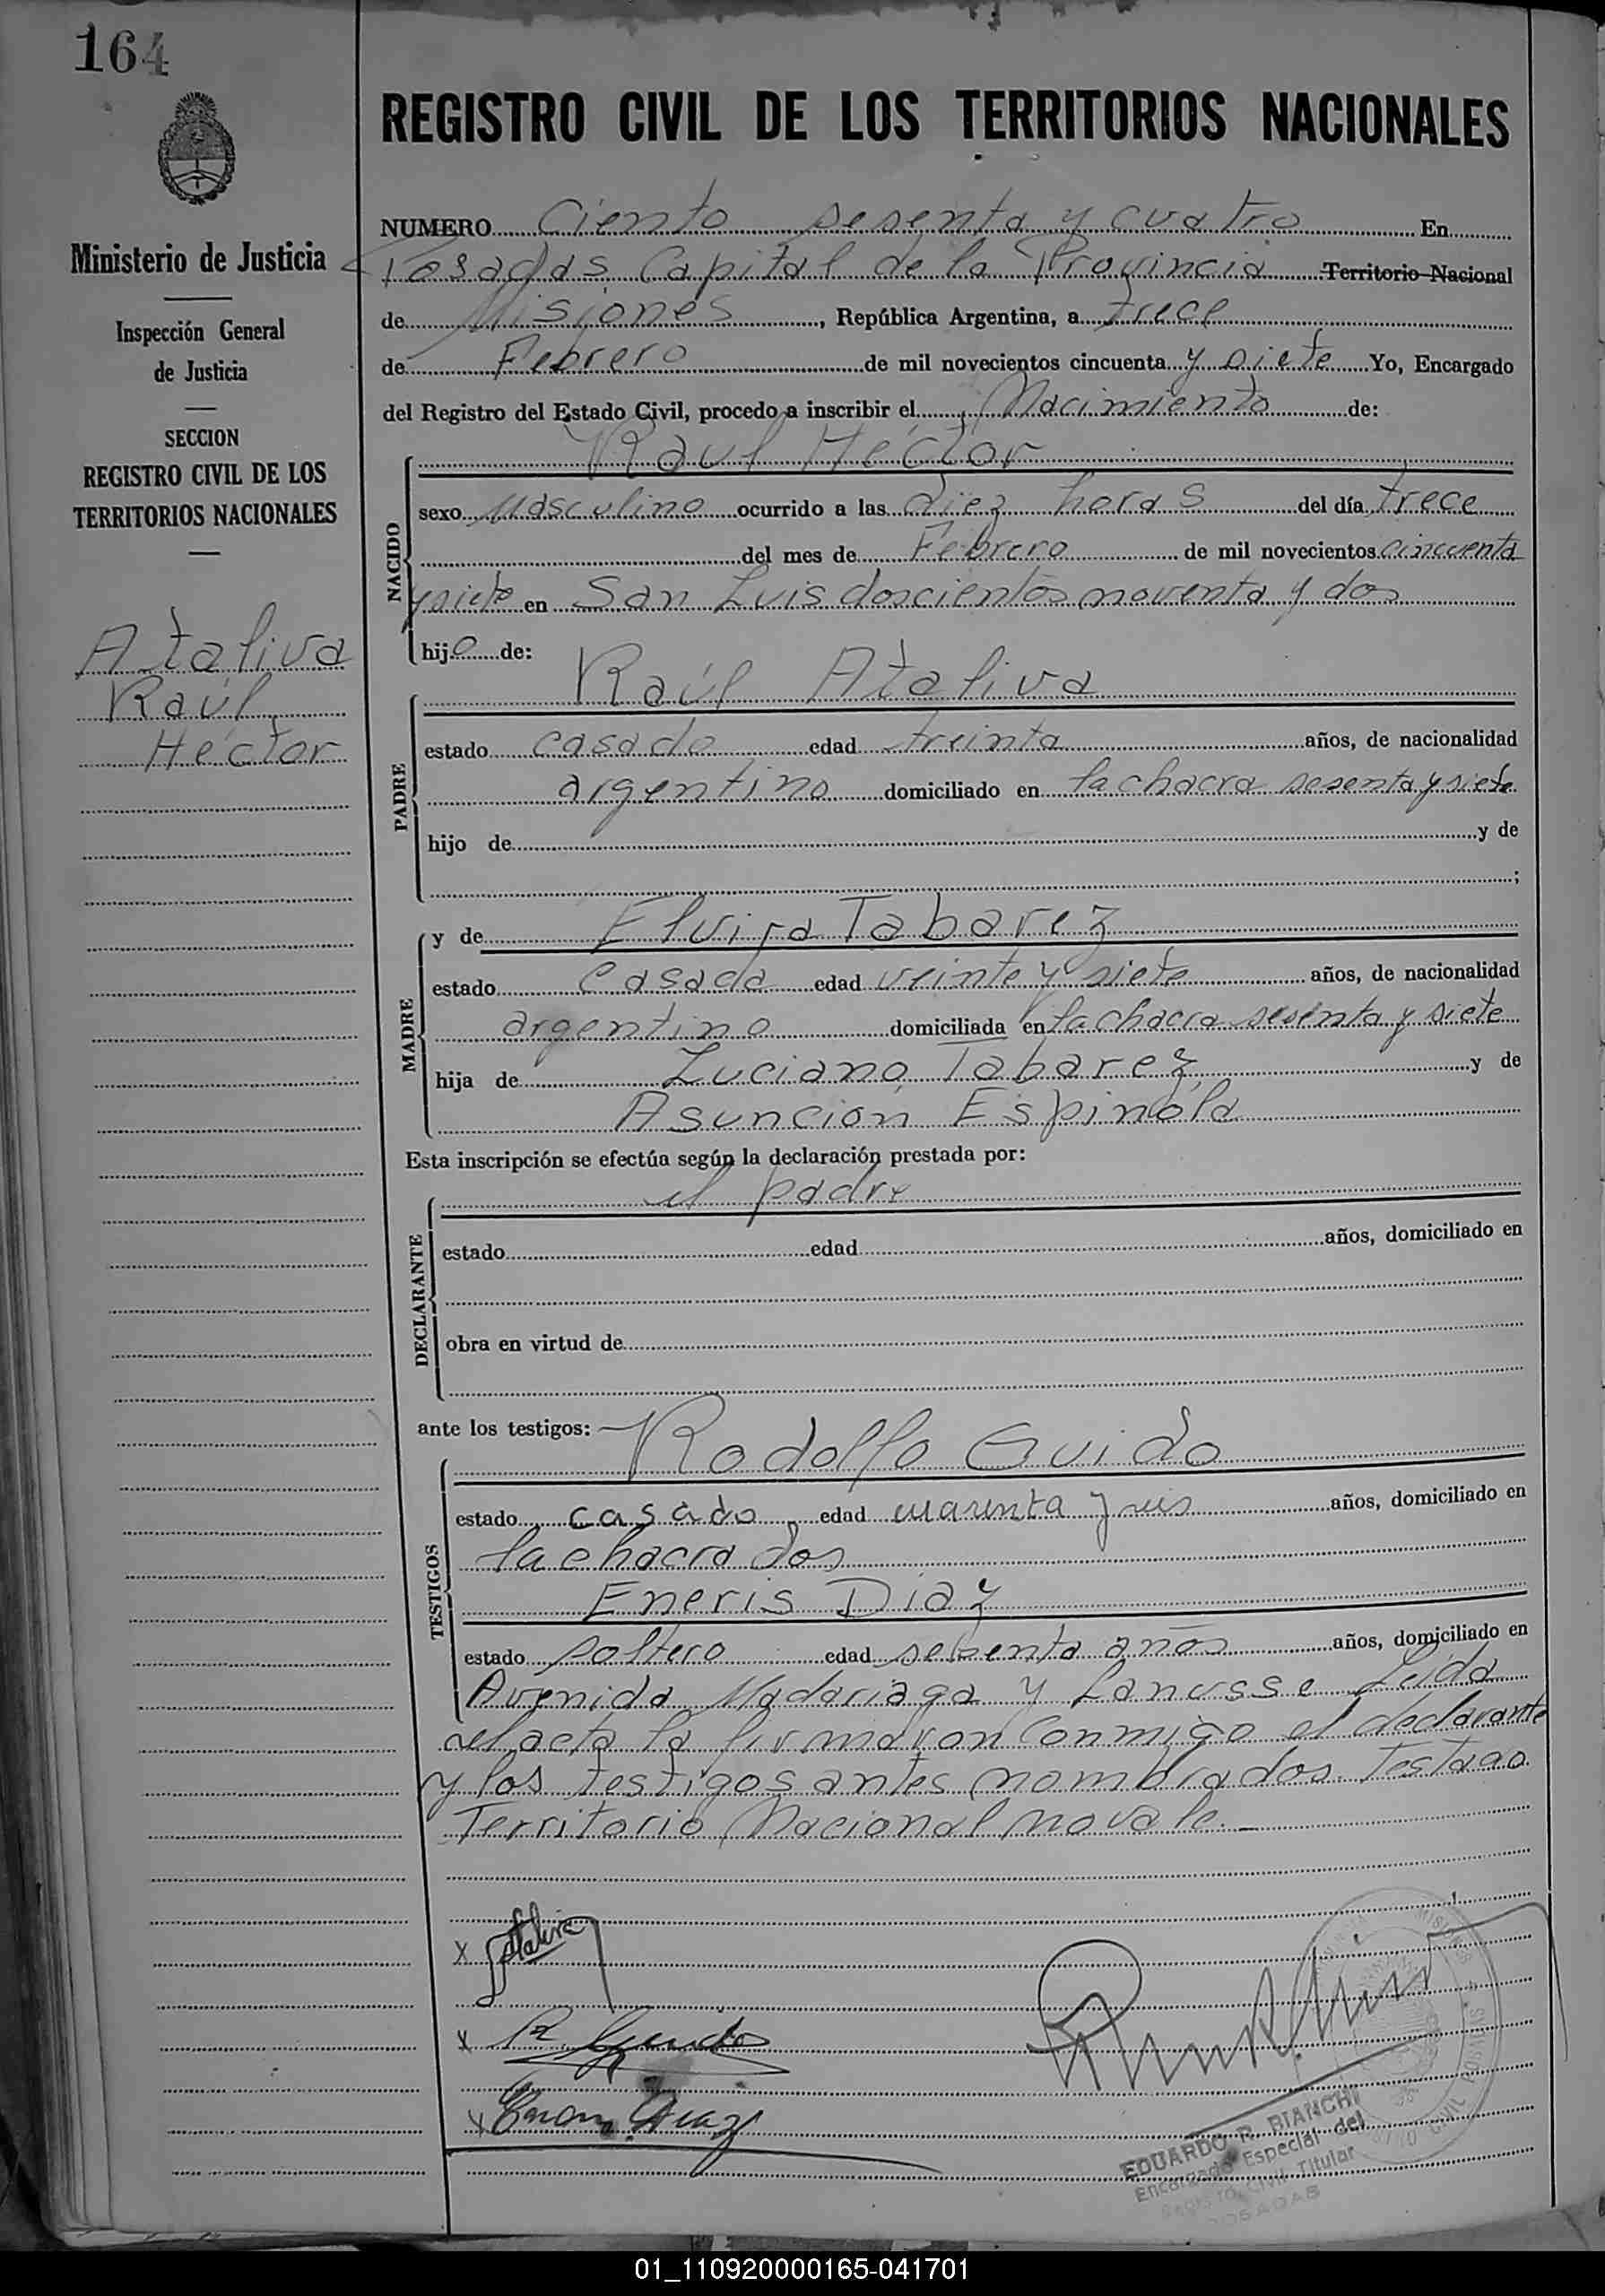 164
REGISTRO CIVIL DE LOS TERRITORIOS NACIONALES
Ministerio de Justicia
Inspección General
de Justicia
SECCION
REGISTRO CIVIL DE LOS
TERRITORIOS NACIONALES
Ataliva
Raúl
Héctor
NUMERO Ciento sesenta y cuatro En
Posadas Capital de la Provincia Territorio Nacional
de Misiones, República Argentina, a trece
de Febrero de mil novecientos cincuenta y siete Yo, Encargado
del Registro del Estado Civil, procedo a inscribir el Nacimiento de:
Raúl Héctor
NACIDO
sexo Masculino ocurrido a las diez horas del día trece
del mes de Febrero de mil novecientos cincuenta
y siete en San Luis doscientos noventa y dos
hijo de:
Raúl Ataliva
PADRE
estado casado edad treinta años, de nacionalidad
argentino domiciliado en la chacra sesenta y siete
hijo de y de
;
MADRE
y de Elvira Tabarez
estado casada edad veinte y siete años, de nacionalidad
argentina domiciliada en la chacra sesenta y siete
hija de Luciano Tabarez y de
Asunción Espinola
Esta inscripción se efectúa según la declaración prestada por:
el padre
DECLARANTE
estado edad años, domiciliado en
obra en virtud de
ante los testigos: Rodolfo Guido
TESTIGOS
estado casado edad cuarenta y seis años, domiciliado en
la chacra dos
Eneris Diaz
estado soltero edad años años, domiciliado en
Avenida Madariaga y Lanusse Leida
el acta la firmaron conmigo el declarante
y los testigos antes nombrados. Testado
Territorio Nacional no vale.
x Ataliva
x R. Guido
x Diaz
EDUARDO R. BIANCHI
Encargado Especial del
Registro Civil Titular
POSADAS
01_110920000165-041701